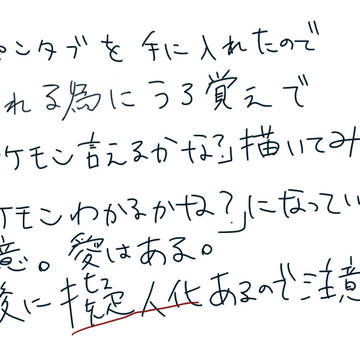 ペンタブを手に入れたので
れる為にうろ覚えで
ケモン言えるかな?」描いてみ
ケモンわかるかな?」になってい
意。愛はある。
後に擬人化あるので注意